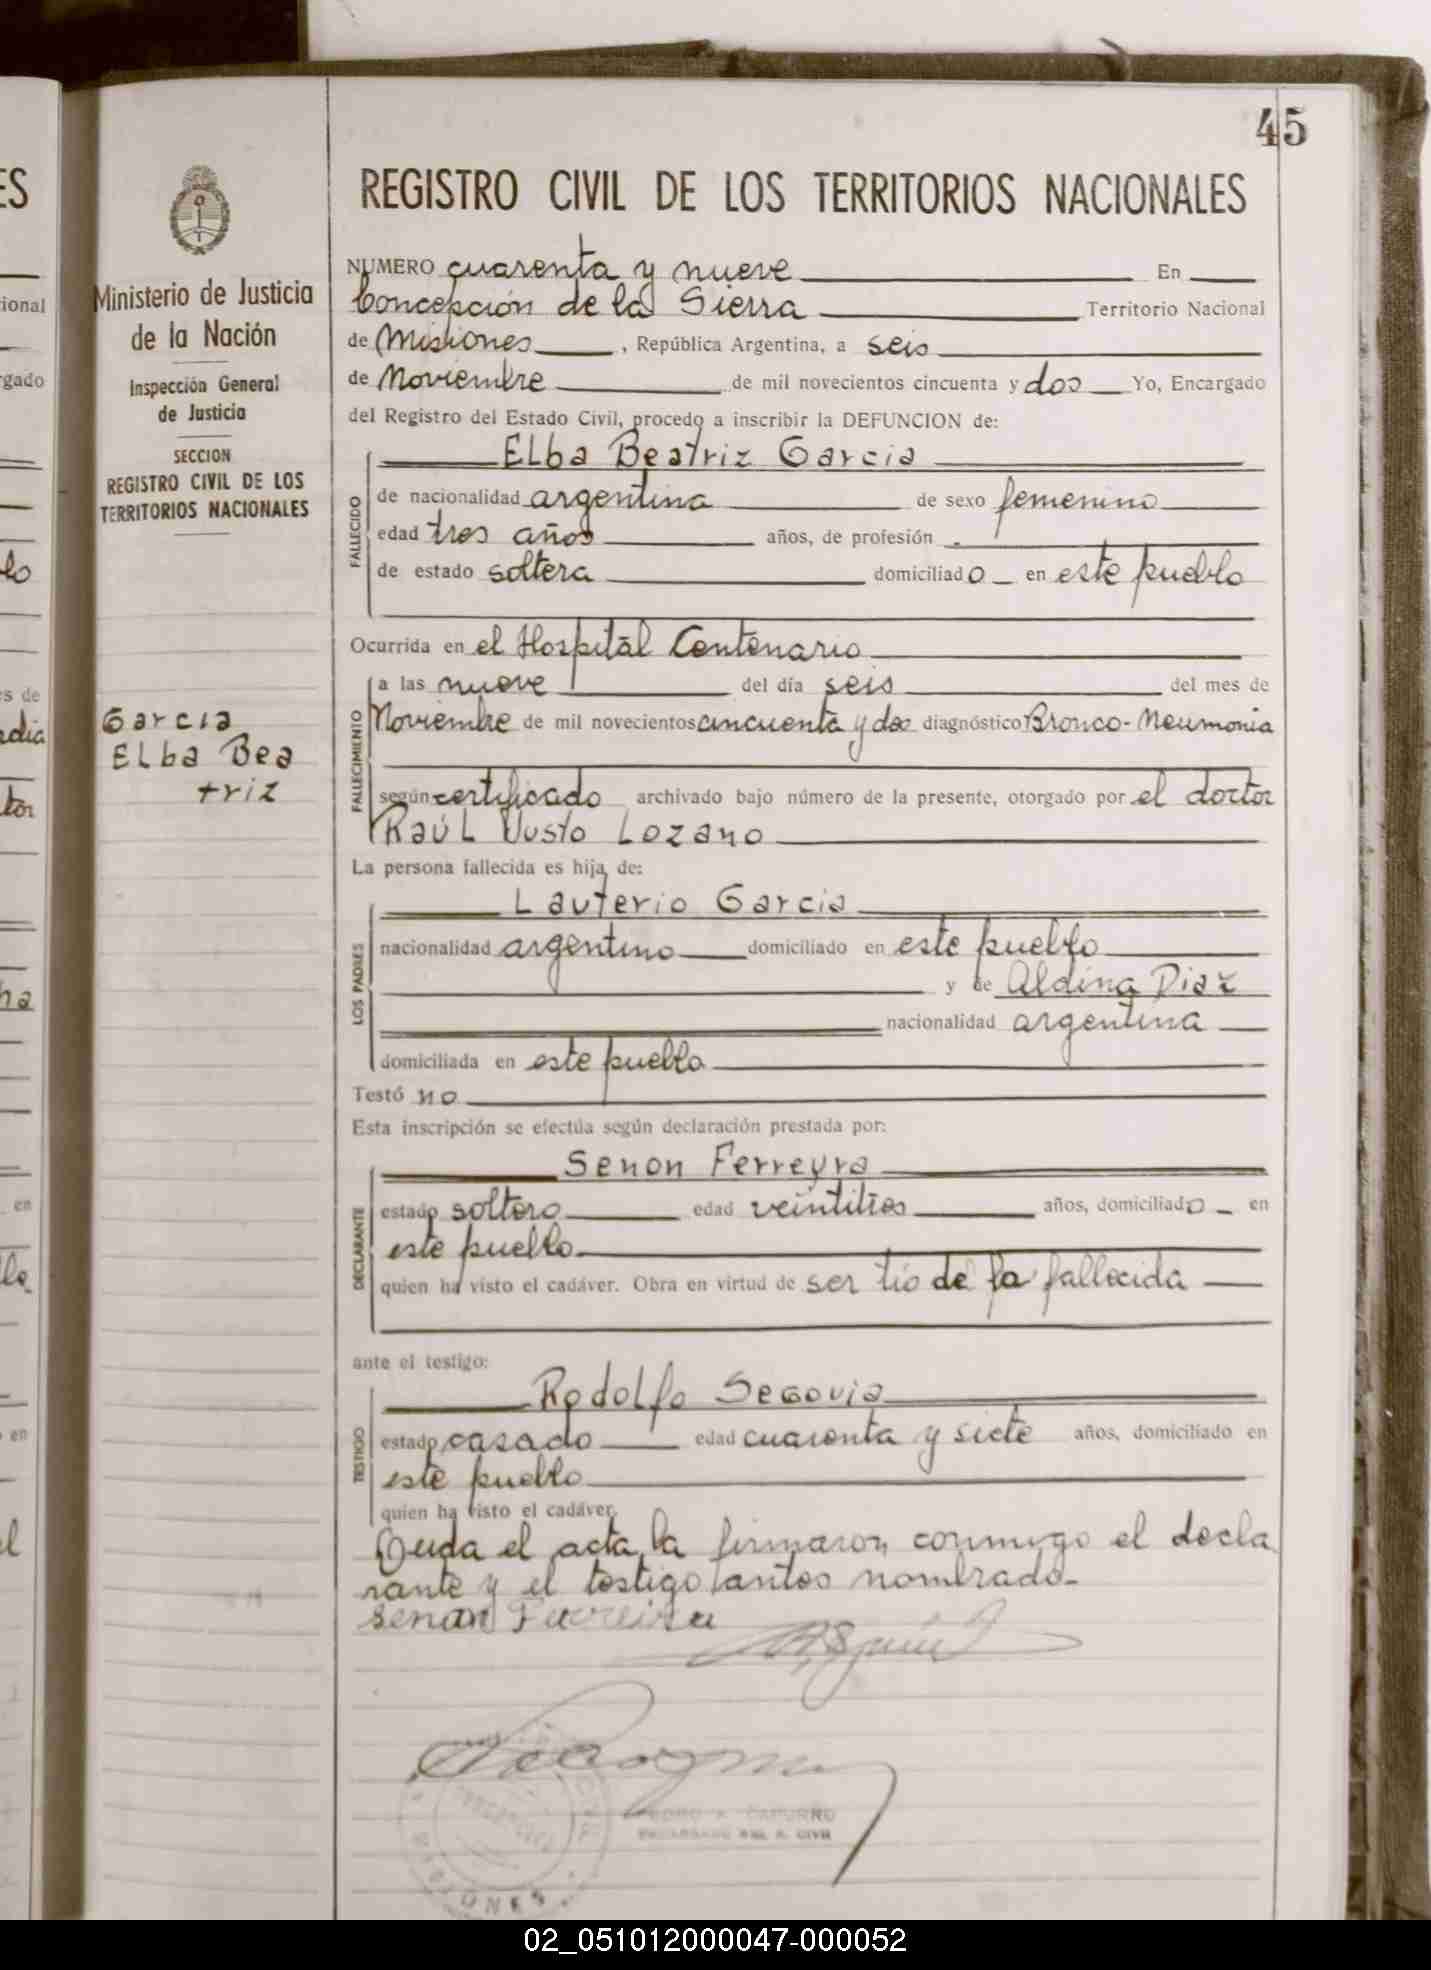 45
REGISTRO CIVIL DE LOS TERRITORIOS NACIONALES
Ministerio de Justicia
de la Nación
Inspección General
de Justicia
SECCION
REGISTRO CIVIL DE LOS
TERRITORIOS NACIONALES
Garcia
Elba Bea
triz
NUMERO cuarenta y nueve En
Concepción de la Sierra Territorio Nacional
de Misiones, República Argentina, a seis
de Noviembre de mil novecientos cincuenta y dos Yo, Encargado
del Registro del Estado Civil, procedo a inscribir la DEFUNCION de:
FALLECIDO
Elba Beatriz Garcia
de nacionalidad argentina de sexo femenino
edad tres años años, de profesión
de estado soltera domiciliado en este pueblo
Ocurrida en el Hospital Centenario
FALLECIMIENTO
a las nueve del día seis del mes de
Noviembre de mil novecientos cincuenta y dos diagnóstico Bronco-Neumonia
según certificado archivado bajo número de la presente, otorgado por el doctor
Raúl Justo Lozano
La persona fallecida es hija de:
LOS PADRES
Lauterio Garcia
nacionalidad argentino domiciliado en este pueblo
y de Aldina Diaz
nacionalidad argentina
domiciliada en este pueblo
Testó no
Esta inscripción se efectúa según declaración prestada por:
DECLARANTE
Senon Ferreyra
estado soltero edad veintitres años, domiciliado en
este pueblo
quien ha visto el cadáver. Obra en virtud de ser tio de la fallecida
ante el testigo:
TESTIGO
Rodolfo Segovia
estado casado edad cuarenta y siete años, domiciliado en
este pueblo
quien ha visto el cadáver.
el acta, la firmaron conmigo el decla
rante y el testigo antes nombrado-
Senan Ferreira
PEDRO A. CAPURRO
ENCARGADO DEL R. CIVIL
MISIONES
02_051012000047-000052